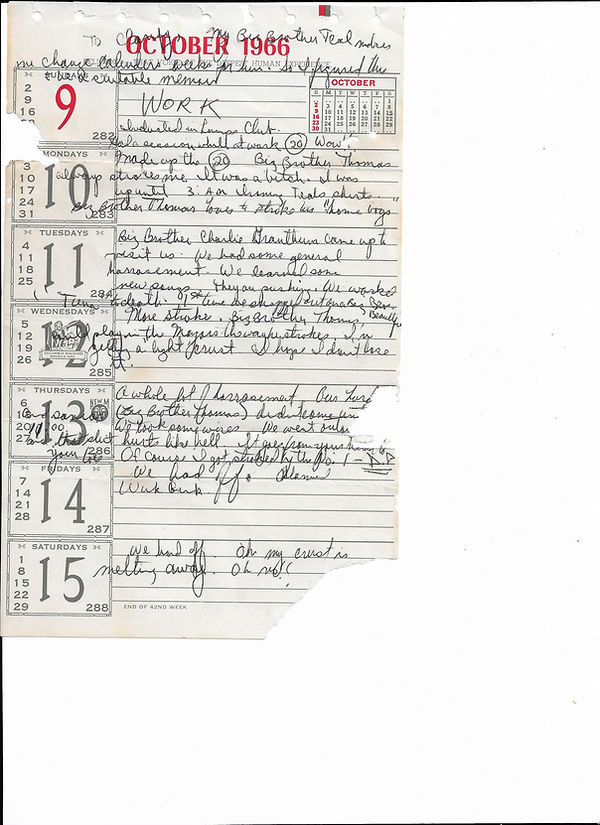 To My Big Brother Teal makes
OCTOBER 1966
me change calenders weeks for him. So I figured this
HUMAN EXPERIENCE
be a suitable memoir
9
2
9
16
282
WORK
OCTOBER
S M T W T F S
1
2 3 4 5 6 7 8
9 10 11 12 13 14 15
16 17 18 19 20 21 22
23 24 25 26 27 28 29
30 31
Inducted in Lumps Club.
Had a session what at work (20) Wow!
MONDAYS
3
10
17
24
31
10
283
Made up the (20) Big Brother Thomas
always strokes me. It was a bitch. I was
up until 3:A.M. Ironing Teals shirts.
Big Brother Thomas loves to stroke us "home boys
TUESDAYS
4
11
18
25
11
284
Big Brother Charlie came up to
visit us. We had some general
harrasement. We learned some
new songs. They are pushing. We worked
Tuna to death. 1st time we snapped out on a Big
WEDNESDAYS
5
12
19
26
12
285
More strokes. Big Brother Thomas
play in the the way he strokes. I'm
getting a light crust. I hope I don't lose
it!
THURSDAYS
6
13
20
27
13
NEW M
286
A whole lot of harrasement. Our
(Big Brother Thomas) didn't come
We took some wires. We went out
and that shit hurts like hell. It goes from your
your Of course I got stroked by the No. 1 - D.P
FRIDAYS
7
14
21
28
14
287
We had off.
Work
SATURDAYS
1
8
15
22
29
15
288
We had off. Oh my crust is
melting away. Oh no!!
END OF 42ND WEEK